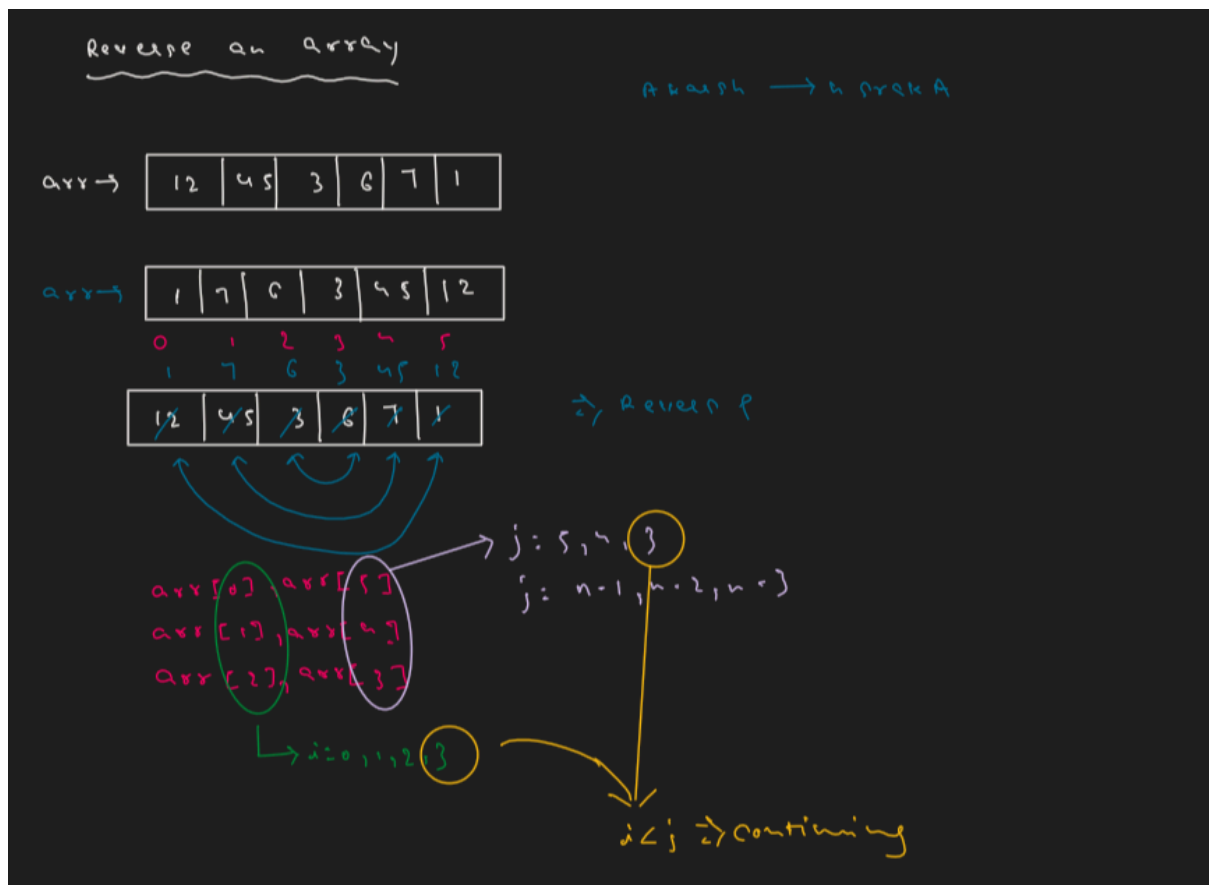 Reverse an array
Akarsh → hsrakA
arr→ 12 45 3 6 7 1
arr→ 1 7 6 3 45 12
0 1 2 3 4 5
1 7 6 3 45 12
12 45 3 6 7 1
⇒ Reverse
j: 5,4,3
j: n-1,n-2,n-3
arr[0],arr[5]
arr[1],arr[4]
arr[2],arr[3]
→ i=0,1,2,3
i<j ⇒ continuing